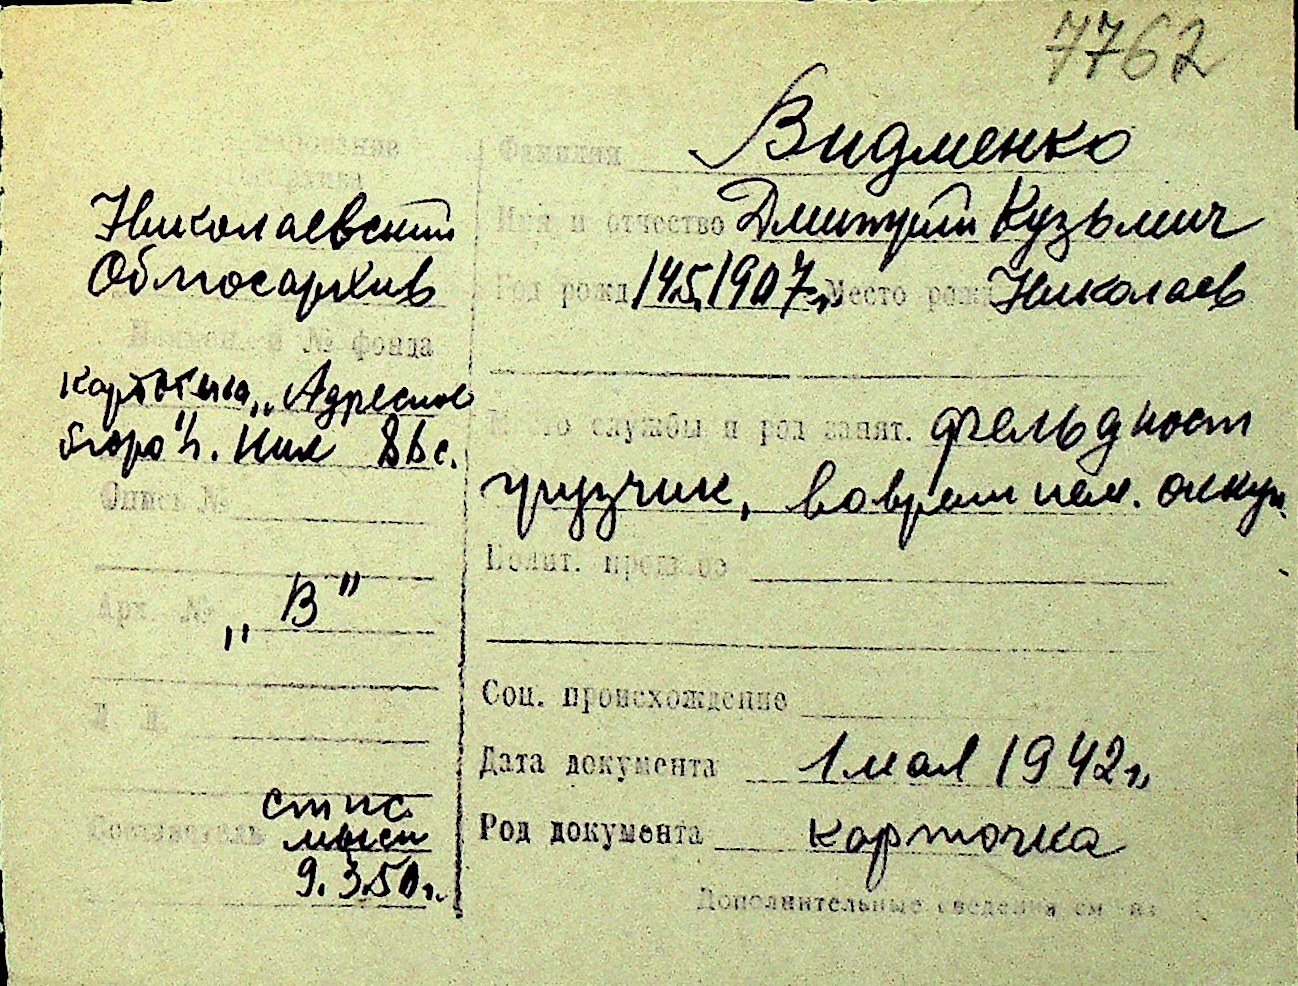 7762
Николаевский
Облгосархив
№ фонда
картотека „Адресное
бюро" г. Ник
Опись №
Арх. №
„В"
9.3.50г.
Фамилия Видменко
Имя и отчество Дмитрий Кузьмич
Год рожд 14.5.1907г. Место рожд Николаев
Место службы и род занят. фельдпост
грузчик, во врем нем. оккуп.
Полит. прошлое
Соц. происхождение
Дата документа 1 мая 1942г.
Род документа карточка
Дополнительные сведения см на